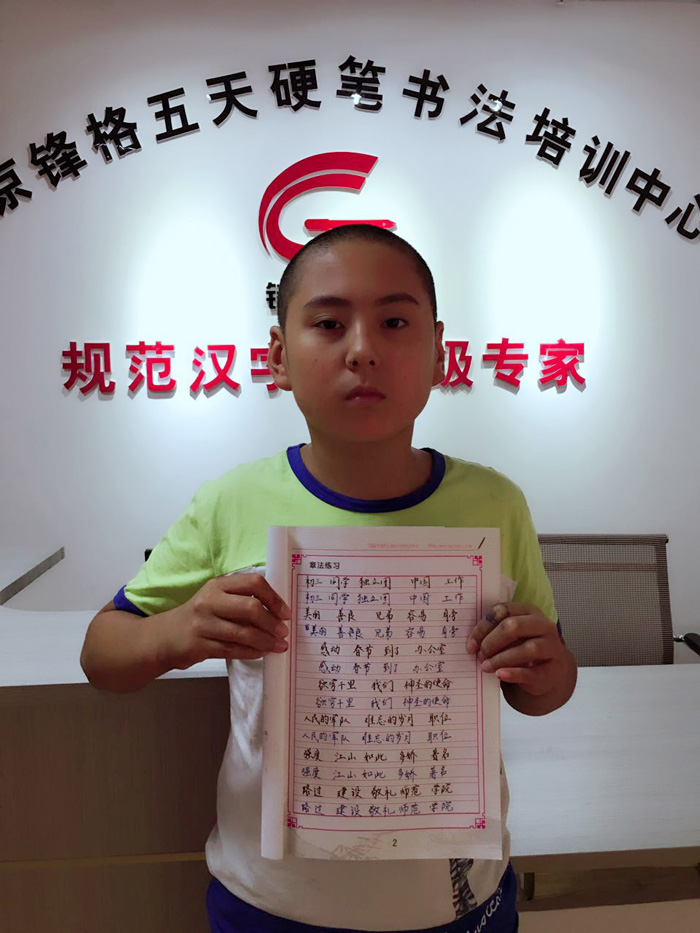 京锋格五天硬笔书法培训中心
规范汉字 级专家
章法练习
初二 同学 独立团 中国 工作
初二 同学 独立团 中国 工作
美丽 善良 兄弟 容易 身旁
美丽 善良 兄弟 容易 身旁
感动 春节 到了 办公室
感动 春节 到了 办公室
欲穷千里 我们 神圣的使命
欲穷千里 我们 神圣的使命
人民的军队 难忘的岁月 职位
人民的军队 难忘的岁月 职位
强度 江山 如此 多娇 著名
强度 江山 如此 多娇 著名
路过 建设 敬礼 师范 学院
路过 建设 敬礼 师范 学院
2